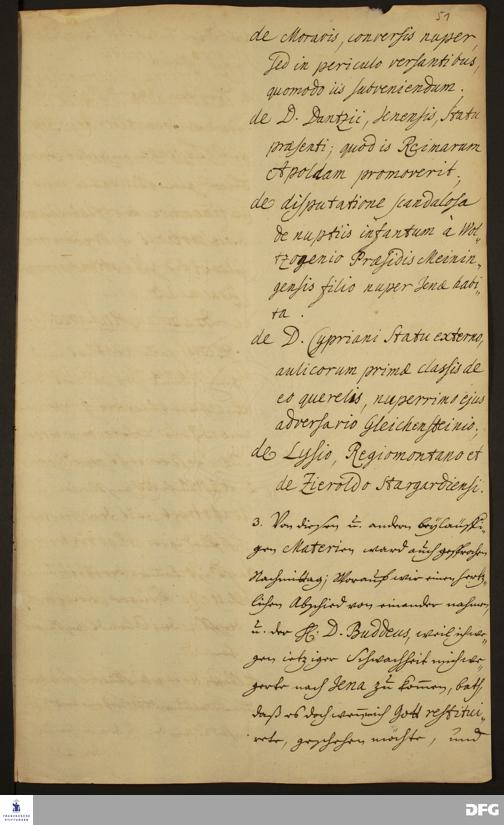 51
de Moravis, conversis nuper,
sed in periculo versantibus,
quomodo iis subveniendum.
de D. Dantzii, Jenensis, statu
præsenti; quod is Rcimarum
Apoldam promoverit;
de disputatione scandalosa
de nuptiis infantum à Wol-
tzogenio Præsidis Meinin-
gensis filio nuper Jenæ habi-
ta.
de D. Cypriani statu externo,
aulicorum primæ classis de
eo querelis, nuperrimo ejus
adversario Gleichensteinio;
de Lysio, Regiomontano et
de Zieroldo Stargardiensi.
3. Von diesen u. andern beyläuffi-
gen Materien ward auch gesprochen
Nachmittag; Worauf wir einen hertz-
lichen Abschied von einander nahmen,
u. der H. D. Buddeus, weil ich we-
gen ietziger Schwachheit mich we-
gerte nach Jena zu kommen, bath,
daß es doch wenn mich Gott restitui-
rete, geschehen möchte, und
FRANCKESCHE
STIFTUNGEN
DFG